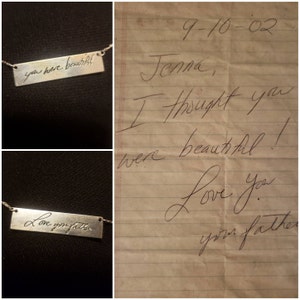 you were beautiful
Love your father
9-10-02
Jenna
I thought you
were beautiful!
Love You
your father